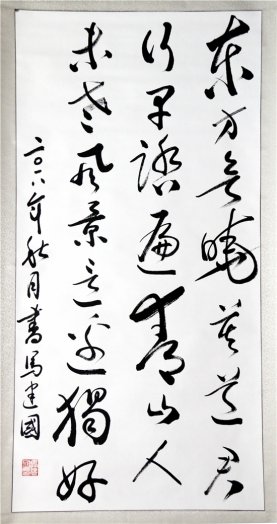 东方欲曉莫道君
行早踏遍青山人
未老风景这边獨好
二〇一八年秋月書馬建國